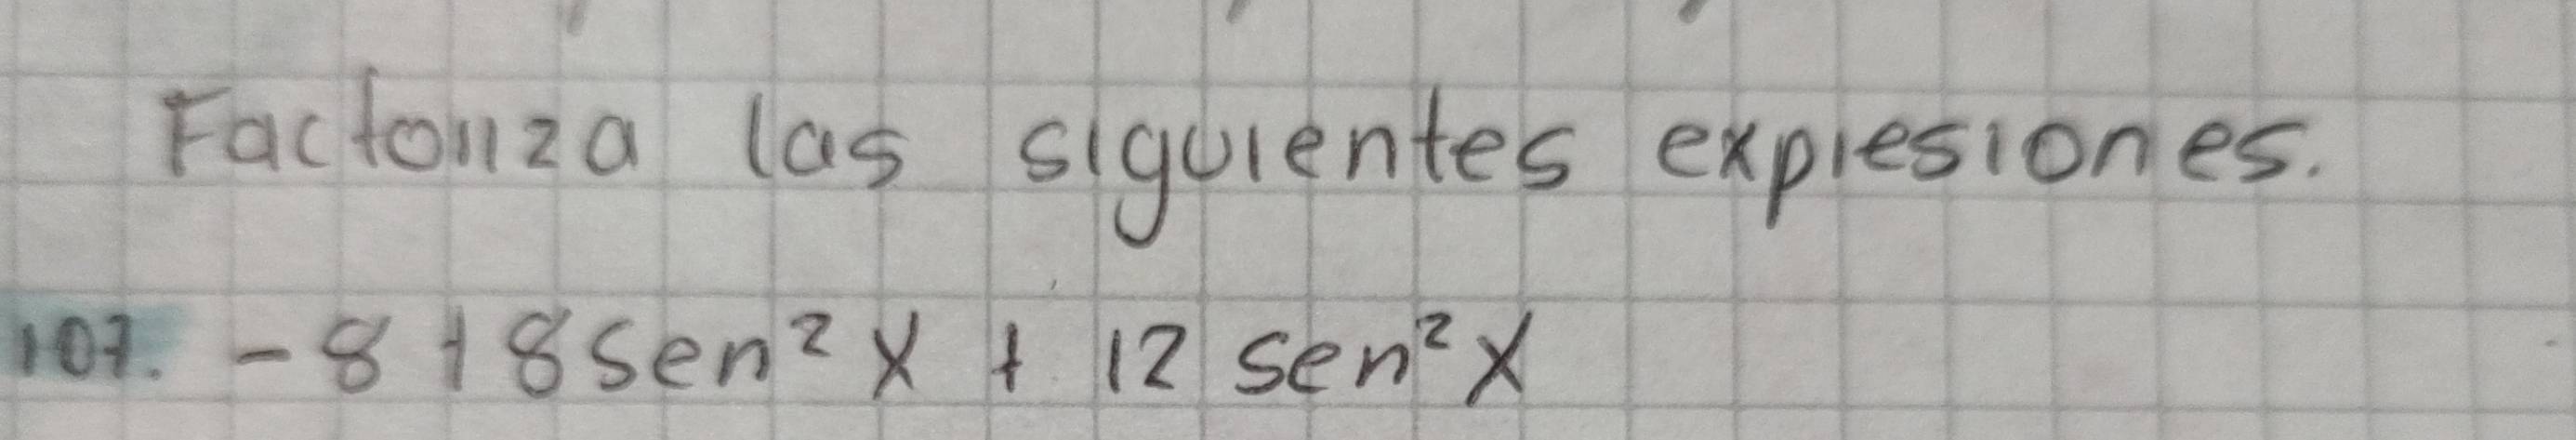 Factoriza las siguientes expresiones.
107. -8 + 8 sen² x + 12 sen² x